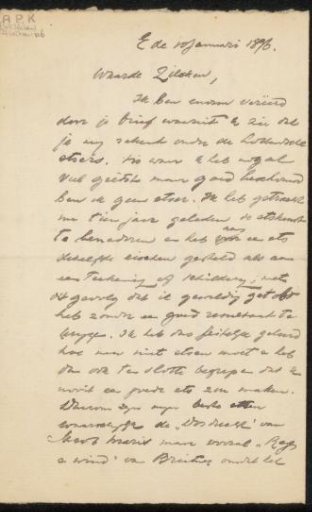 R.P.K
E de 10 januari 1896.
Waarde Zilcken,
Ik ben enorm vereerd
door je brief waaruit ik zie dat
je mij rekent onder de hollandsche
etsers. Als waar ik heb nogal
veel geëtst maar goed beschouwd
ben ik geen etser. Ik heb getracht
me tien jaar geleden de etskunst
te benaderen en heb aan een ets
dezelfde eischen gesteld als aan
een teekening of schilderij, met
het gevolg dat ik geweldig getobt
heb zonder een goed resultaat te
krijgen. Ik heb dus feitelijk geleerd
hoe men niet etsen moet en heb
dan ook ten slotte begrepen dat ik
nooit een goede ets zou maken.
Daarom zijn mijn beste etsen
waarschijnlijk de van
Jacob Maris maar vooral
wind" van